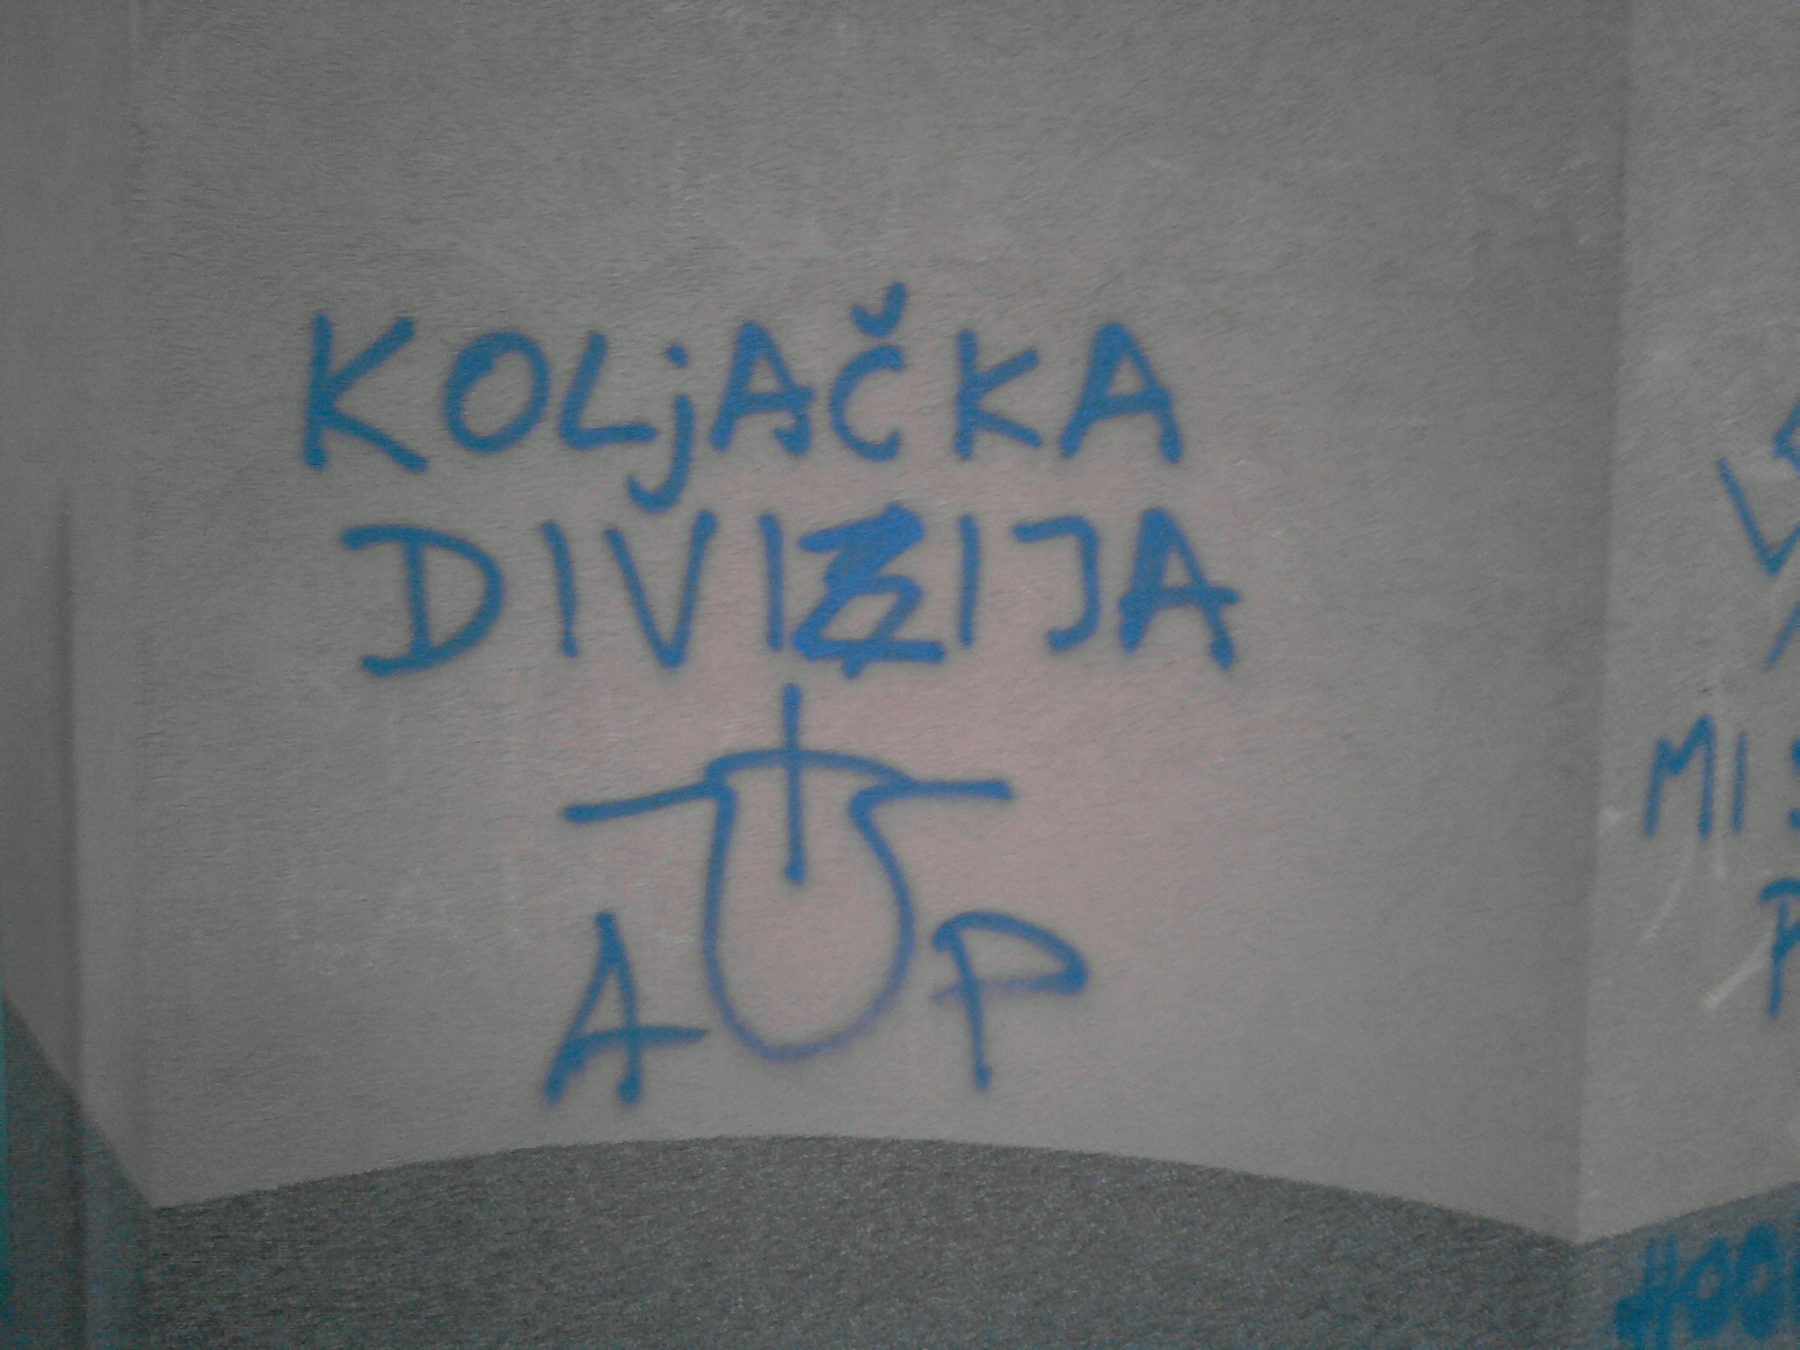 KOLjAČKA
DIVIZIJA
A P
MI
HOO